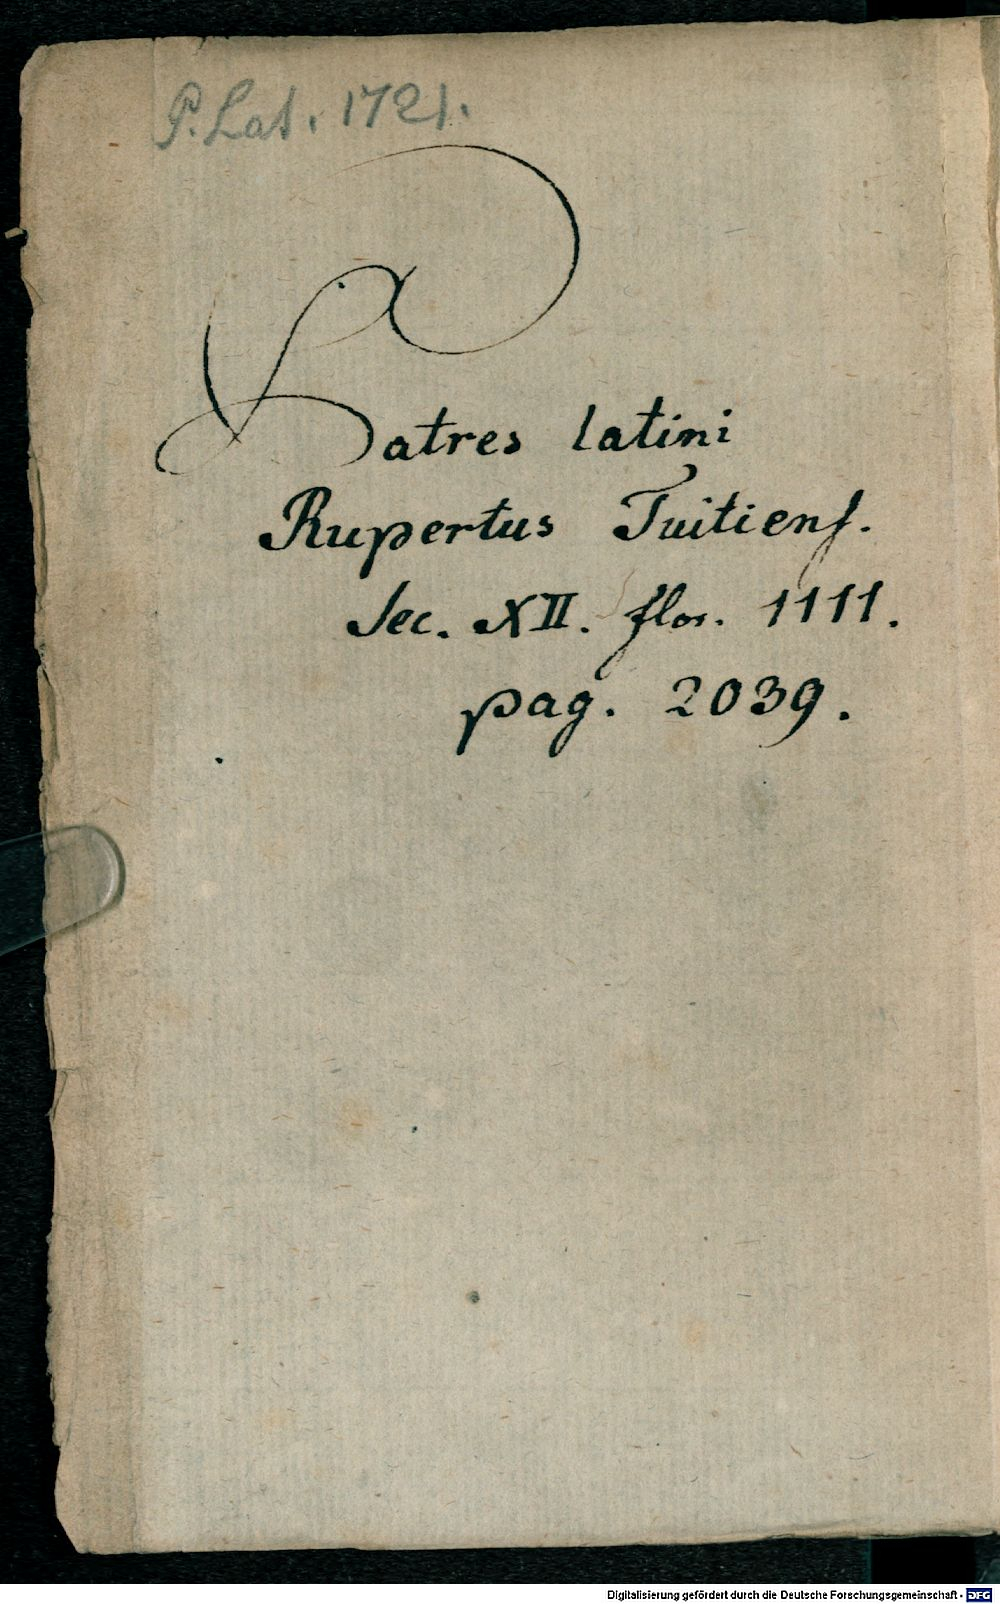 P. Lat. 1721.
Patres latini
Rupertus Tuitiens.
Sec. XII. flor. 1111.
pag. 2039.
Digitalisierung gefördert durch die Deutsche Forschungsgemeinschaft - DFG